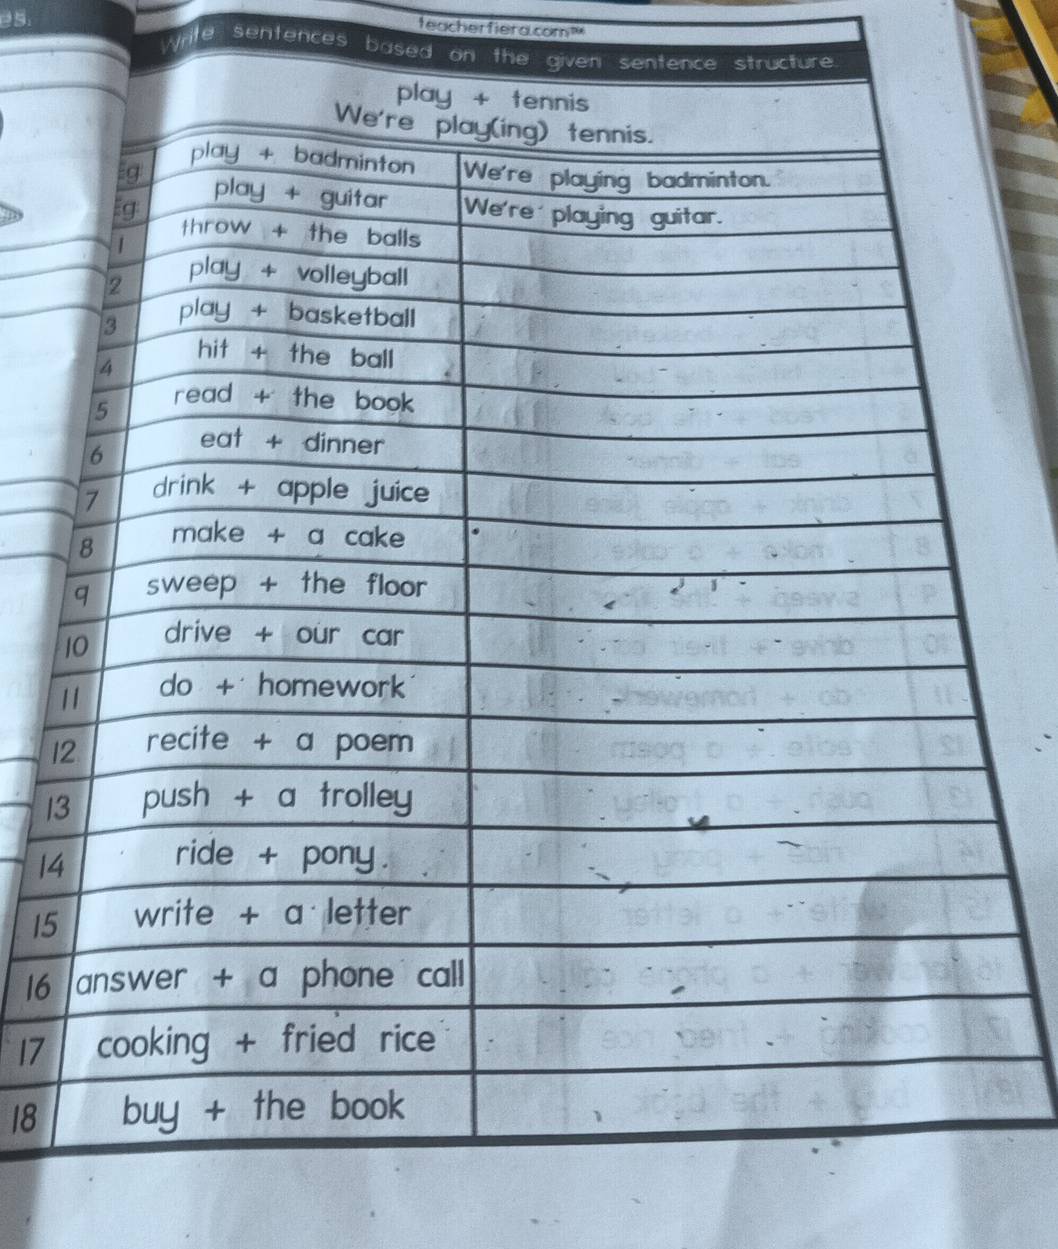 es.
teacherfiera.com™
Write sentences based on the given sentence structure.
play + tennis
We're play(ing) tennis.
Eg play + badminton We're playing badminton.
Eg play + guitar We're playing guitar.
1 throw + the balls
2 play + volleyball
3 play + basketball
4 hit + the ball
5 read + the book
6 eat + dinner
7 drink + apple juice
8 make + a cake
9 sweep + the floor
10 drive + our car
11 do + homework
12 recite + a poem
13 push + a trolley
14 ride + pony.
15 write + a letter
16 answer + a phone call
17 cooking + fried rice
18 buy + the book